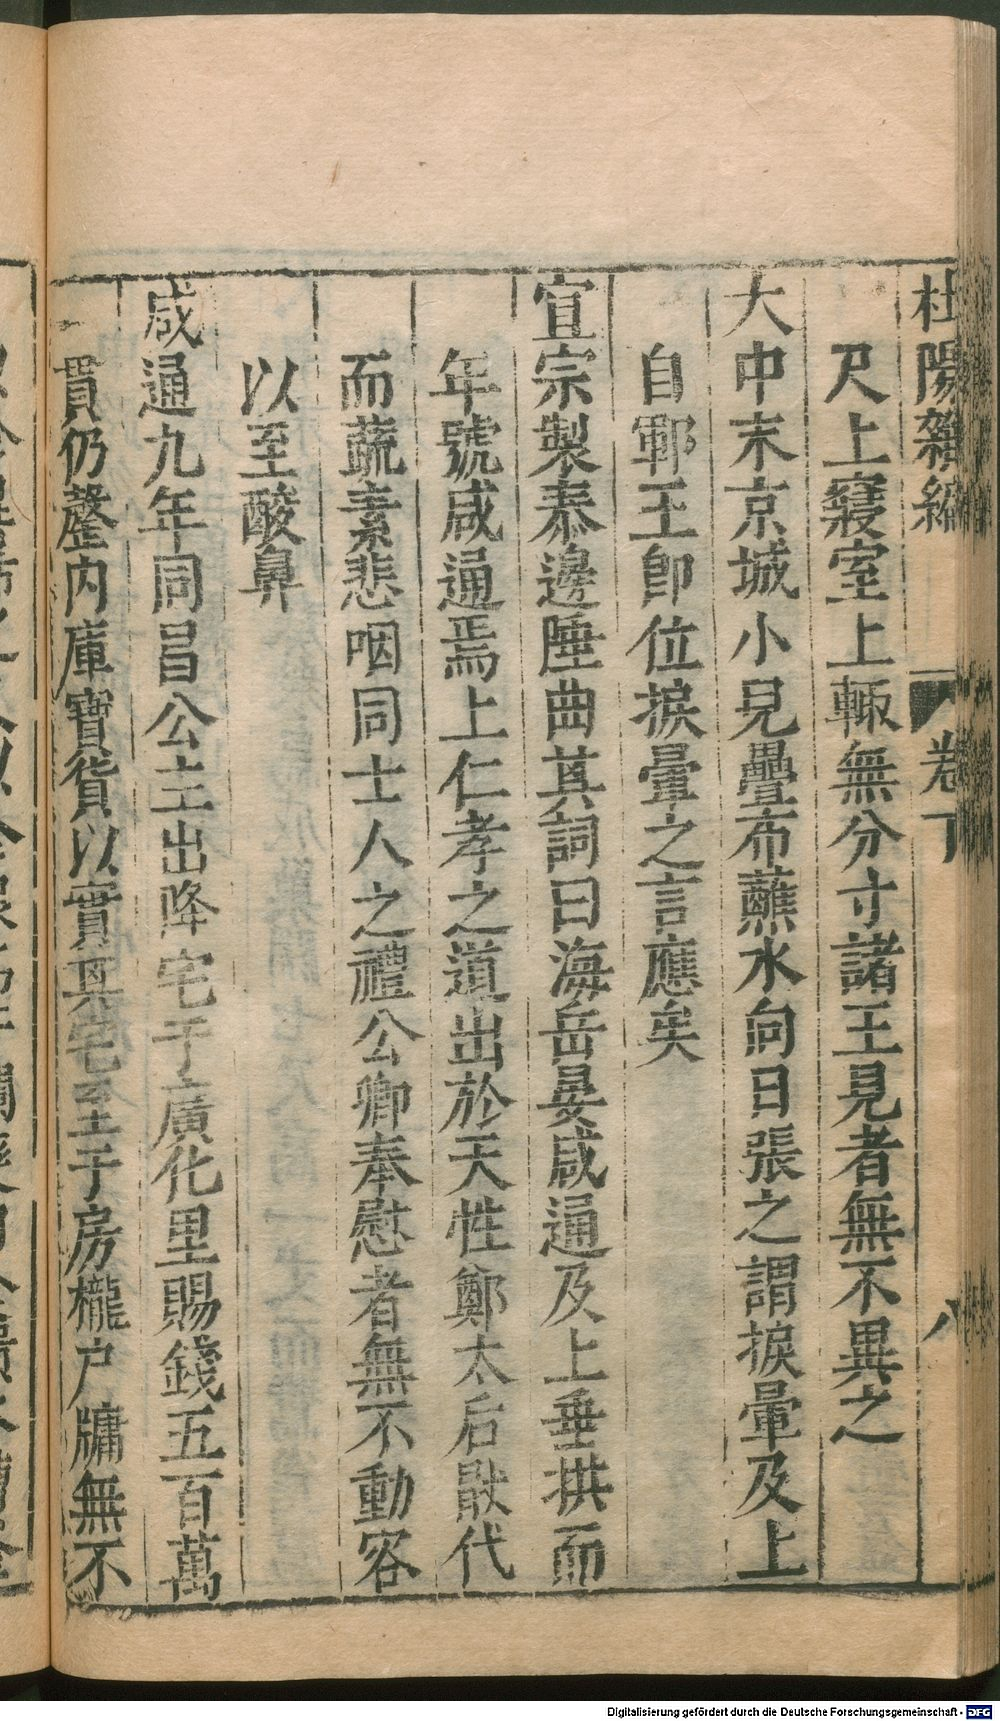 杜陽雜編 卷下 八
尺上寢室上輙無分寸諸王見者無不異之
大中末京城小兒疊布蘸水向日張之謂捩暈及上
自鄆王卽位捩暈之言應矣
宣宗製泰邊陲曲其詞曰海岳晏咸通及上垂拱而
年號咸通焉上仁孝之道出於天性鄭太后猒代
而蔬素悲咽同士人之禮公卿奉慰者無不動容
以至酸鼻
咸通九年同昌公主出降宅于廣化里賜錢五百萬
貫仍罄內庫寶貨以實其宅至于房櫳户牖無不
Digitalisierung gefördert durch die Deutsche Forschungsgemeinschaft - DFG